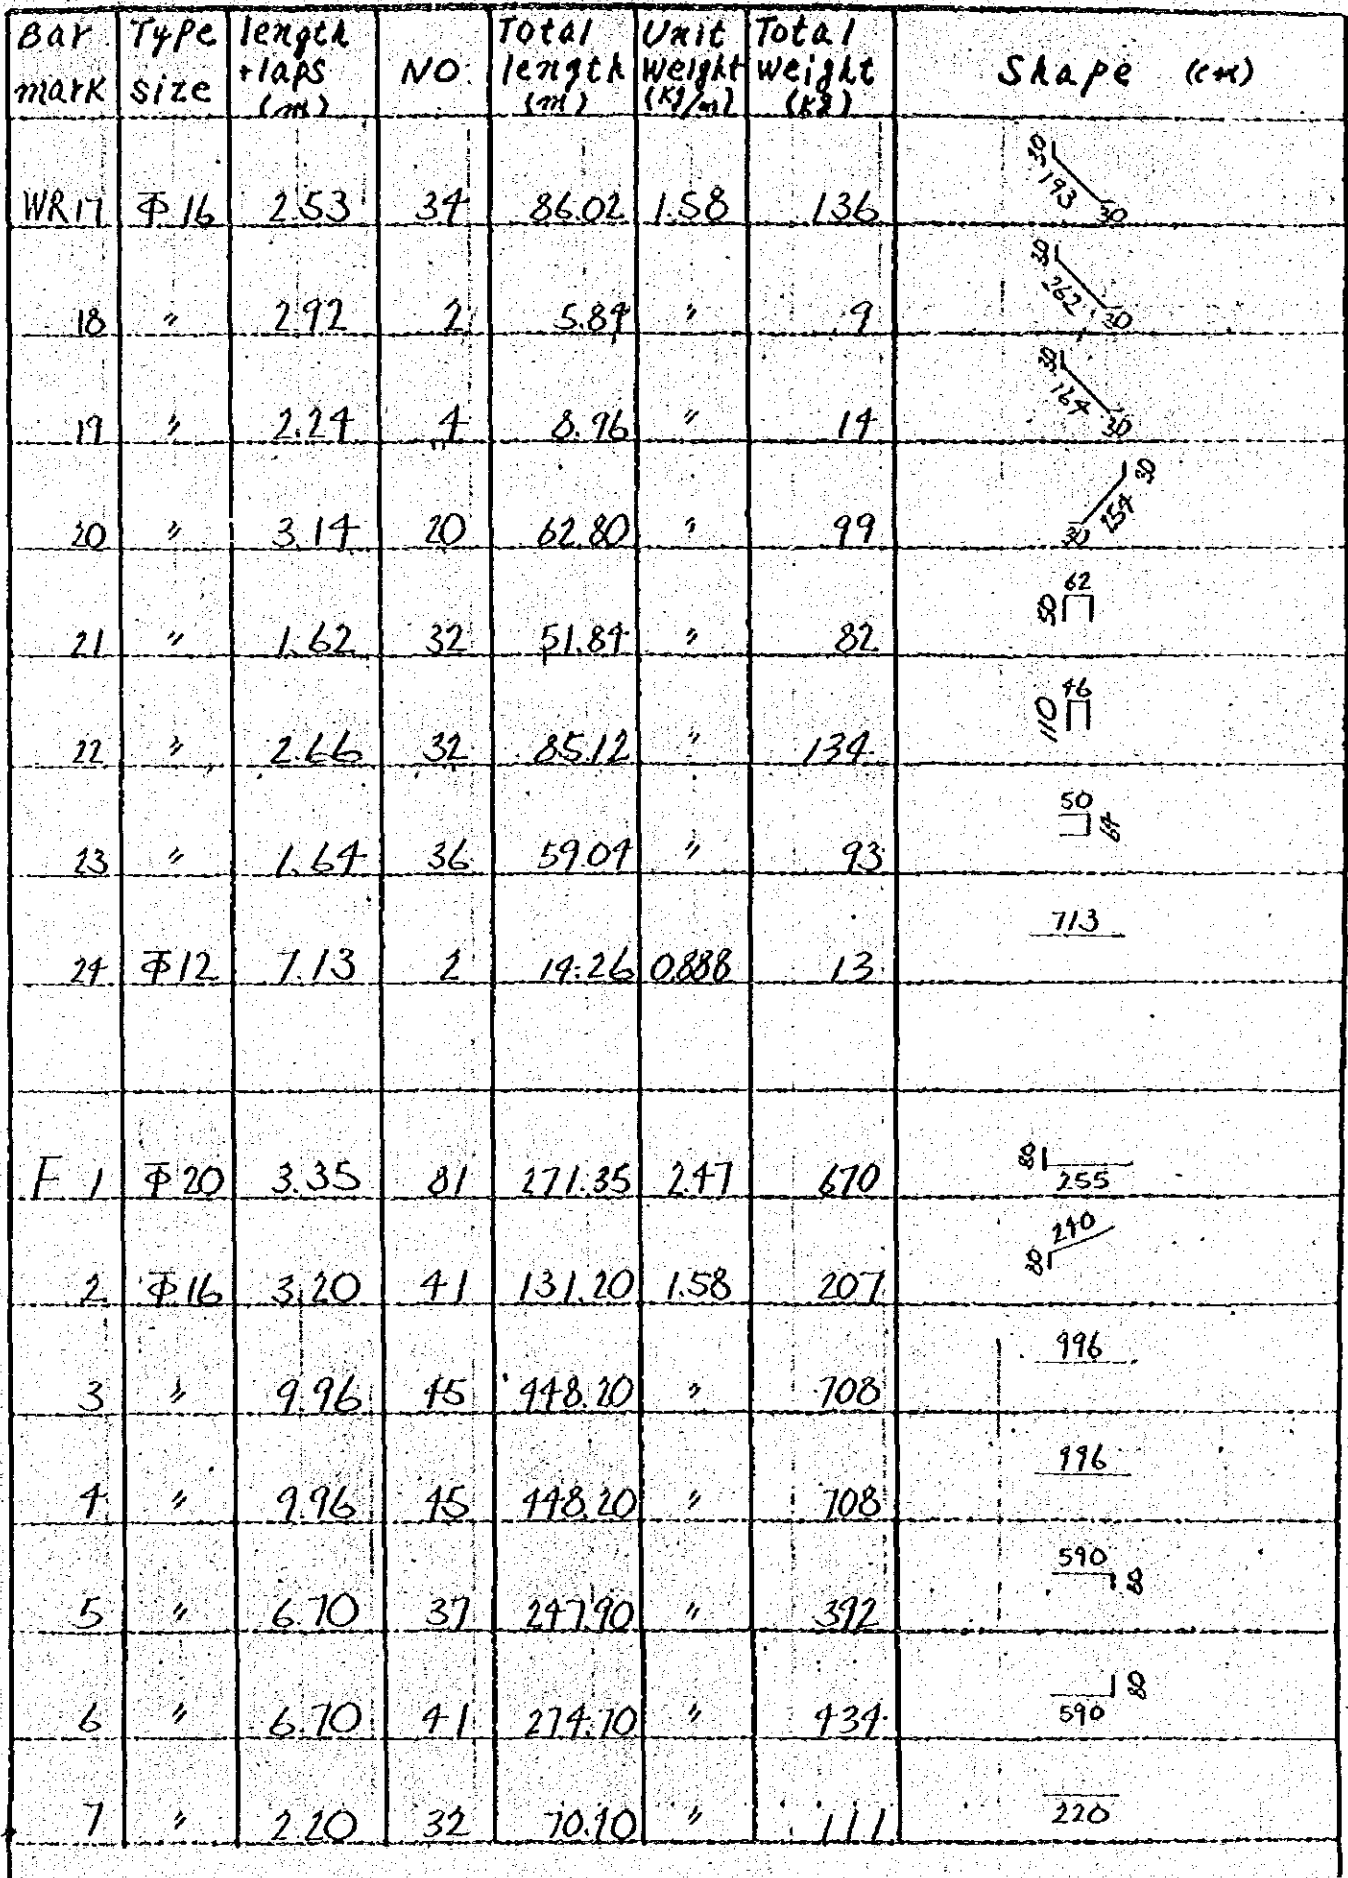 Bar mark Type size length +laps (m) NO. Total length (m) Unit weight (kg/m) Total weight (kg) Shape (cm)
WR17 Φ16 2.53 34 86.02 1.58 136 30 193 30
18 〃 2.92 2 5.84 〃 9 30 262 30
19 〃 2.24 4 8.96 〃 14 30 164 30
20 〃 3.14 20 62.80 〃 99 30 254 30
21 〃 1.62 32 51.84 〃 82 50 62
22 〃 2.66 32 85.12 〃 134 110 46
23 〃 1.64 36 59.04 〃 93 50 64
24 Φ12 7.13 2 14.26 0.888 13 713
F 1 Φ20 3.35 81 271.35 2.47 670 80 255
2 Φ16 3.20 41 131.20 1.58 207 80 240
3 〃 9.96 45 448.20 〃 708 996
4 〃 9.96 45 448.20 〃 708 996
5 〃 6.70 37 247.90 〃 392 590 80
6 〃 6.70 41 274.70 〃 434 590 80
7 〃 2.20 32 70.40 〃 111 220